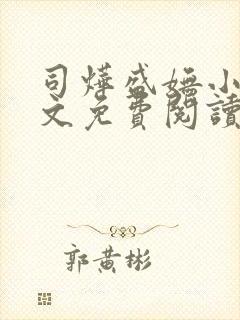 司燁盛嫵小
文免費閱讀
郭黃彬